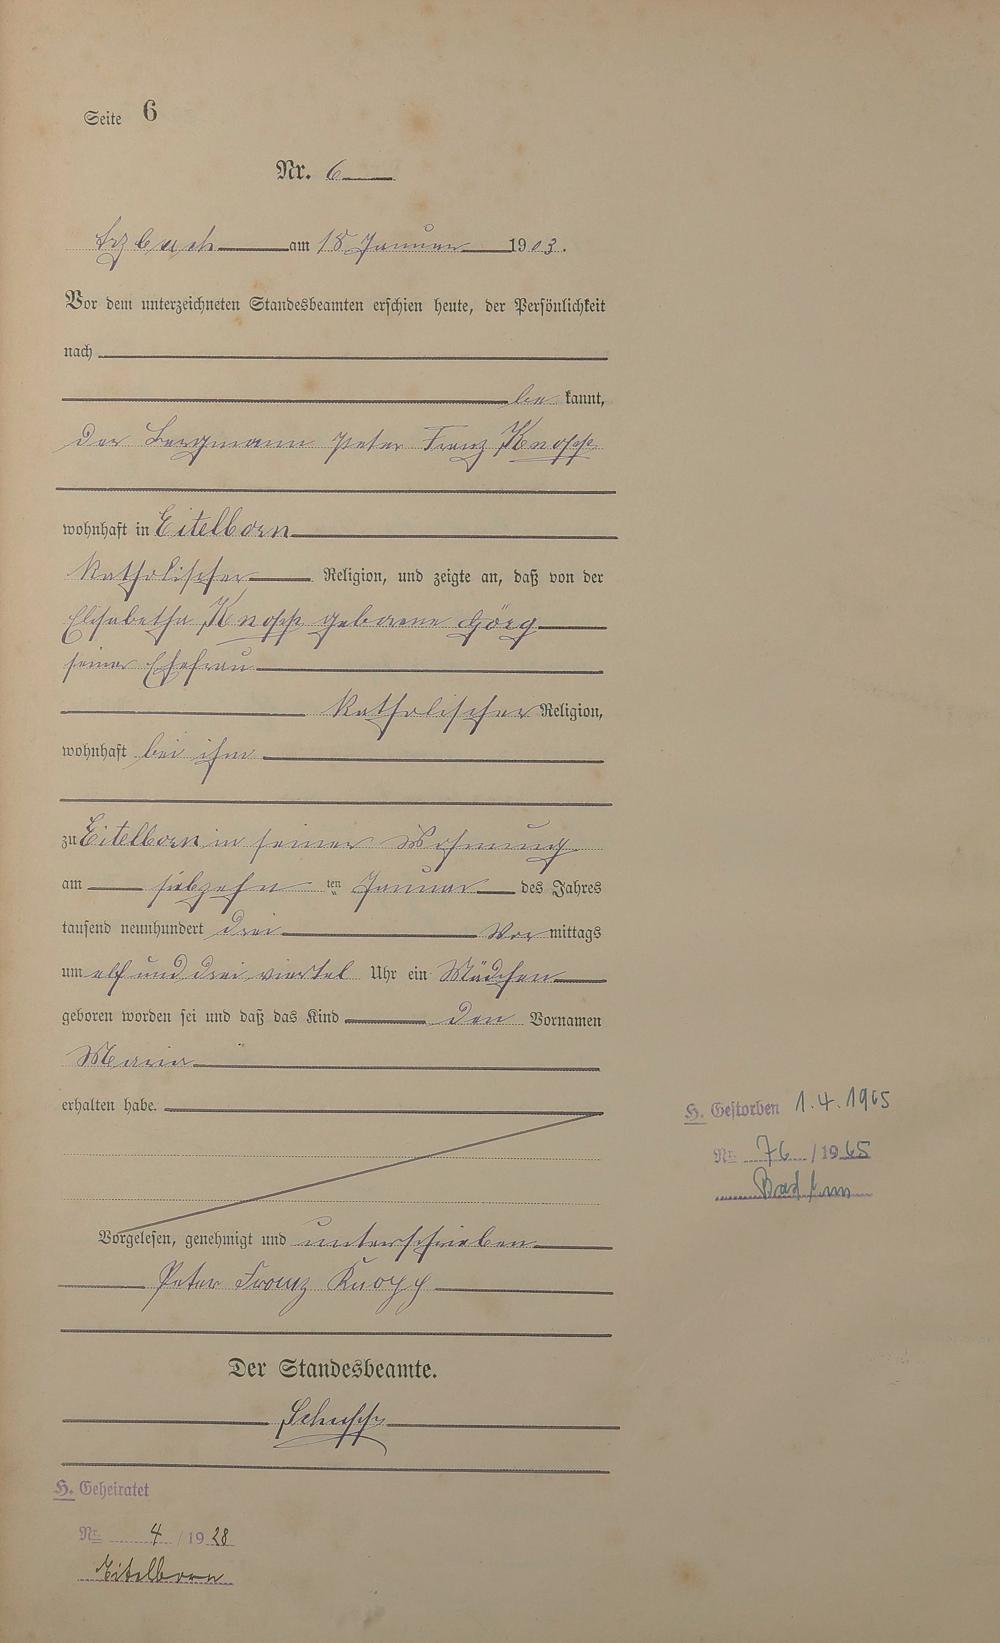 Seite 6
Nr. 6
am 18 Januar 1903.
Vor dem unterzeichneten Standesbeamten erschien heute, der Persönlichkeit
nach
be kannt,
der Bergmann Peter Franz Knopp
wohnhaft in Eitelborn
katholischer Religion, und zeigte an, daß von der
Elisabetha Knopp geborene Görg
seiner Ehefrau
katholischer Religion,
wohnhaft bei ihm
zu Eitelborn in seiner Wohnung
am siebzehn ten Januar des Jahres
tausend neunhundert drei Vor mittags
um elf und drei viertel Uhr ein Mädchen
geboren worden sei und daß das Kind den Vornamen
Maria
erhalten habe.
H. Gestorben 1.4.1965
Nr. 76 /1965
Bad Ems
Vorgelesen, genehmigt und unterschrieben
Peter Franz Knopp
Der Standesbeamte.
Schupp
H. Geheiratet
Nr. 4 /1928
Eitelborn